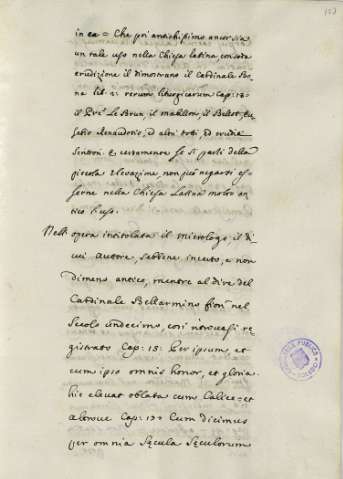 in ea = Che poi antichissimo ancor sia
un tale uso nella Chiesa latina con soda
erudizione il dimostrano il Cardinale Bo-
na lib: 2: rerum liturgicarum cap: 13:
il Pre Le Brun, il mabillon, il Bellot, Eu-
sebio Renaudotio, ed altri dotti, ed erudi
Scrittori. E certamente se si parli della
piccola elevazione, non può negarsi es-
serne nella Chiesa Latina molto an-
tico l'uso.
Nell' opera intitolata il micrologo, il di
cui Autore, sebbene incerto, e non
dimeno antico, mentre al dire del
Cardinale Bellarmino fiorì nel
Secolo undecimo, così ritrovasi re-
gistrato Cap: 15: Per ipsum, et
cum ipso omnis honor, et gloria
hic elevat oblata cum Calice = et
altrove Cap: 23: Cum dicimus
per omnia Sęcula Sęculorum